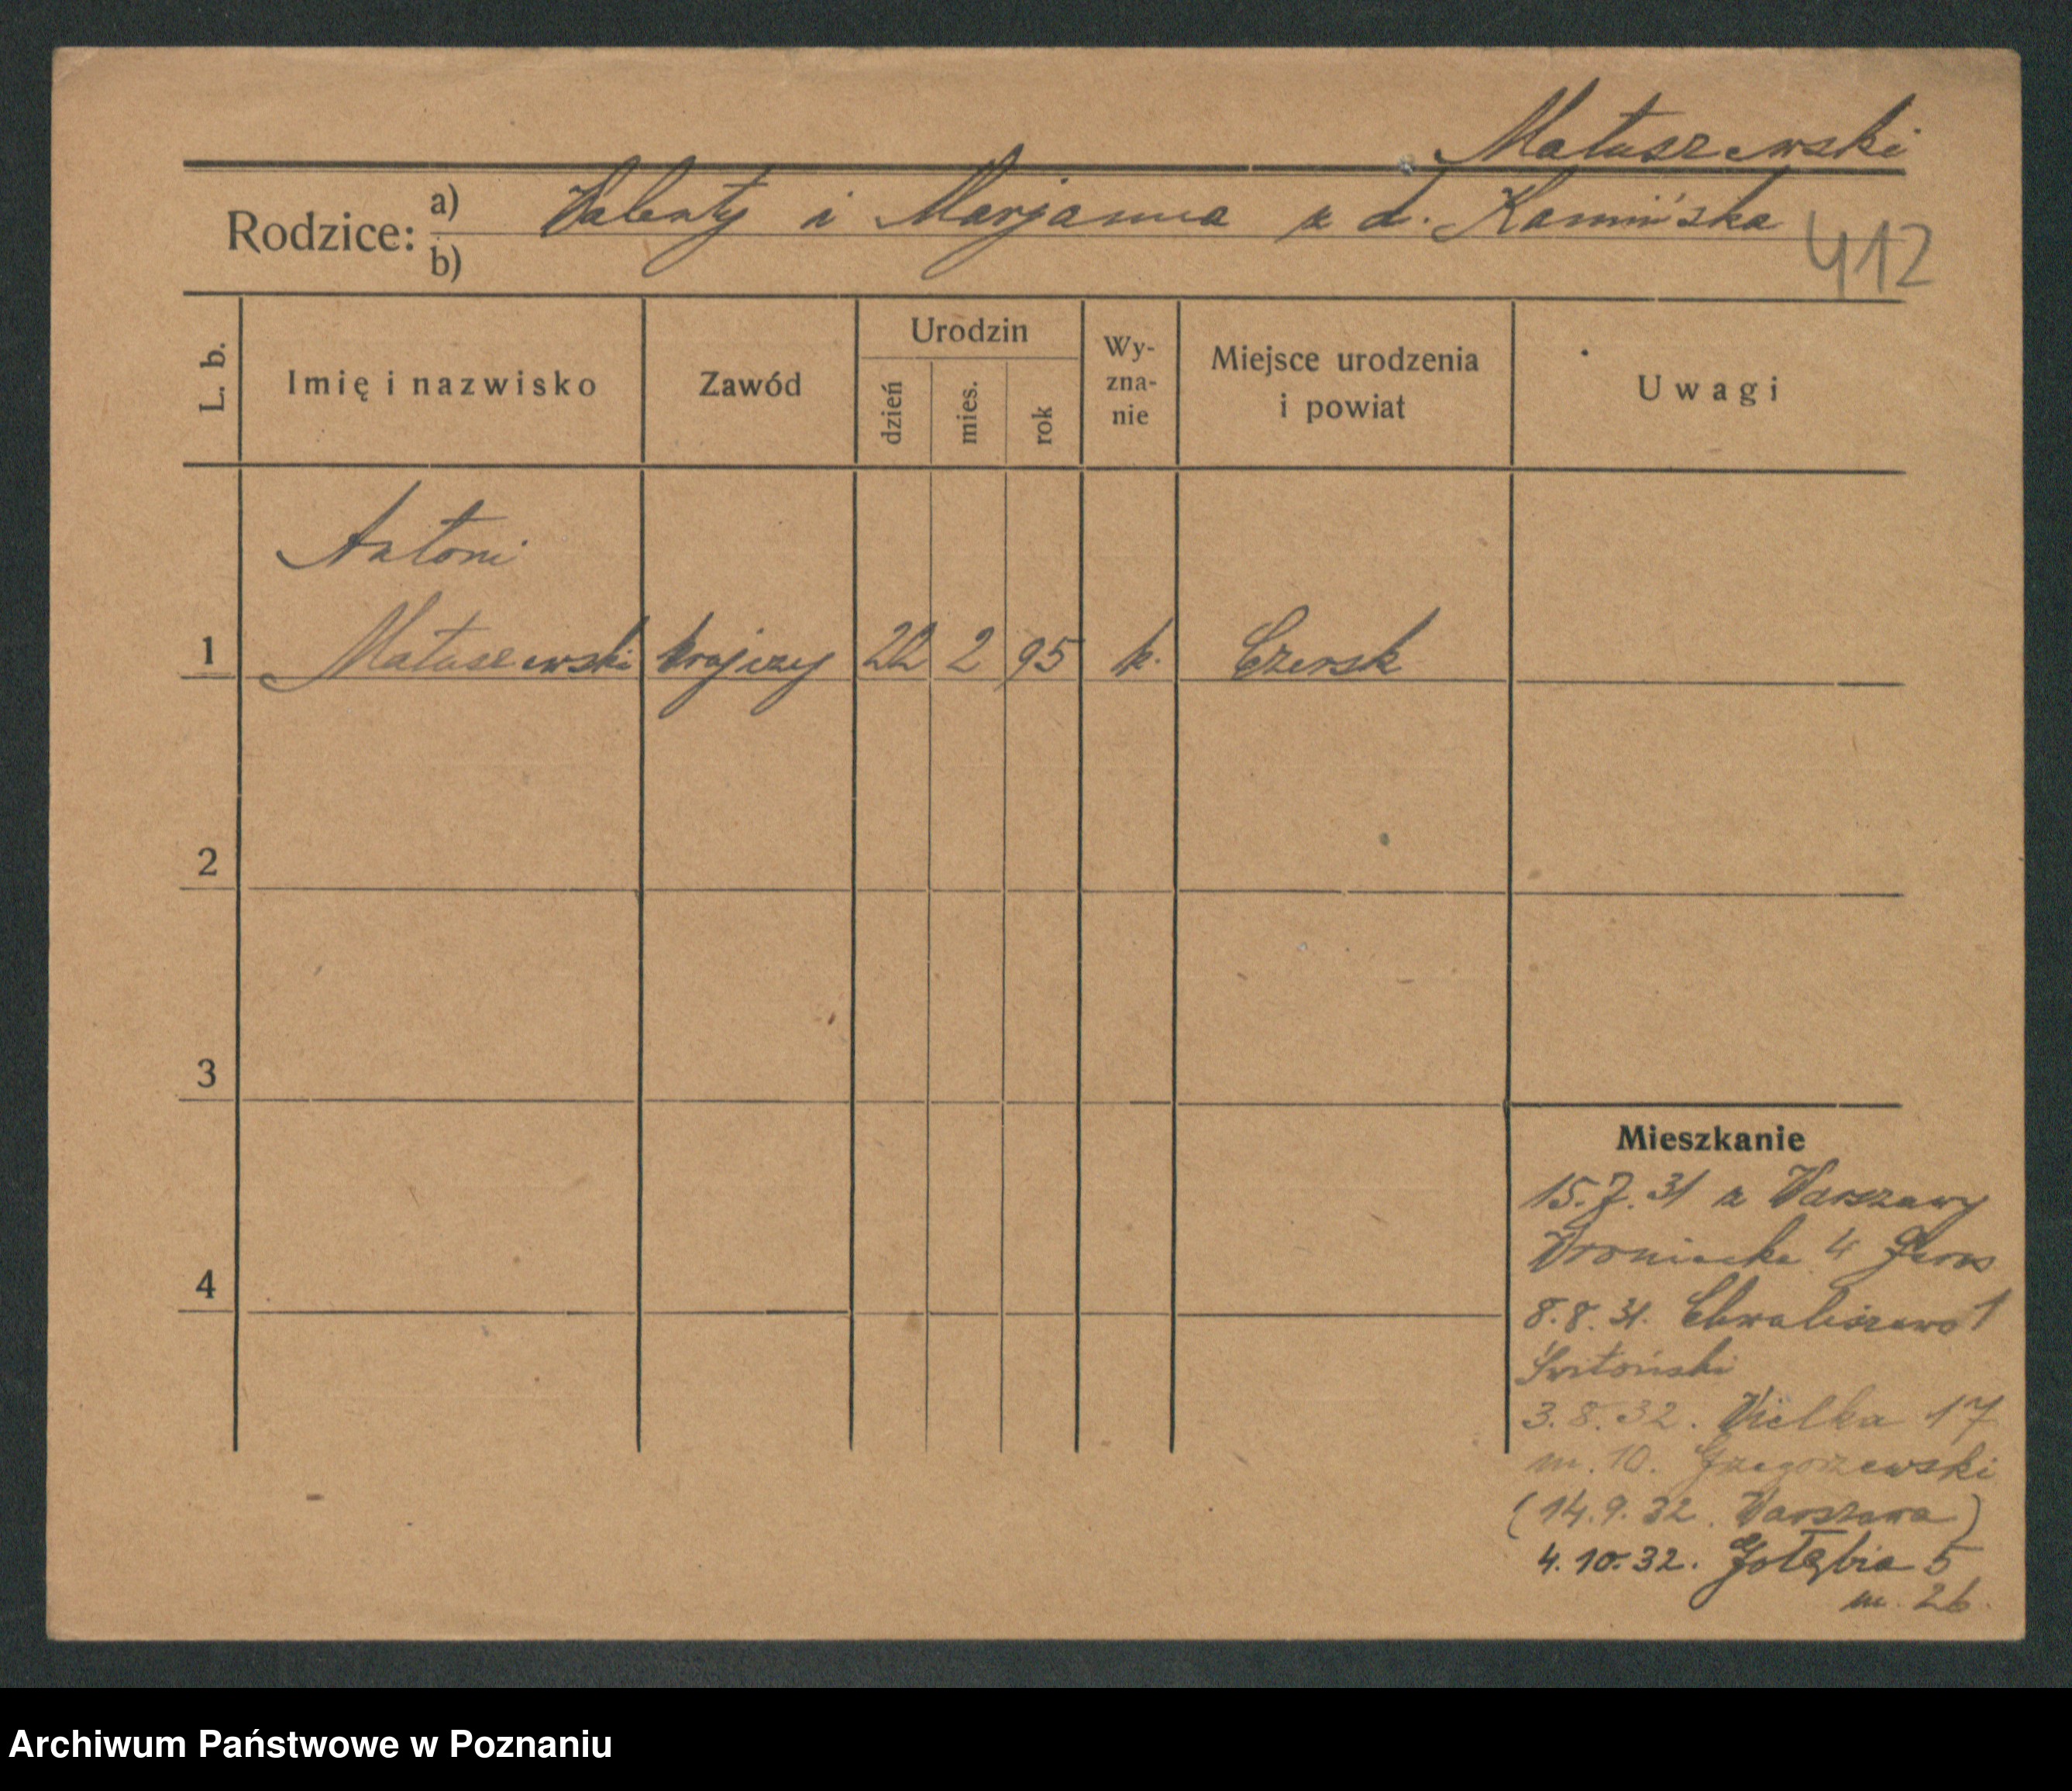 Matuszewski
Rodzice: a) Walenty i Marjanna z d. Kamińska
b)
412
L. b.
Imię i nazwisko
Zawód
Urodzin
dzień
mies.
rok
Wy-
zna-
nie
Miejsce urodzenia
i powiat
Uwagi
Antoni
1 Matuszewski krajczy 22 2 95 k. Czersk
2
3
4
Mieszkanie
15.7.31 z Warszawy
Wroniecka 4
8.8.31. Chwaliszewo 1
3.8.32. Wielka 17
m. 10. Grzegorzewski
(14.9.32. Warszawa)
4.10.32. Gołębia 5
m. 26.
Archiwum Państwowe w Poznaniu